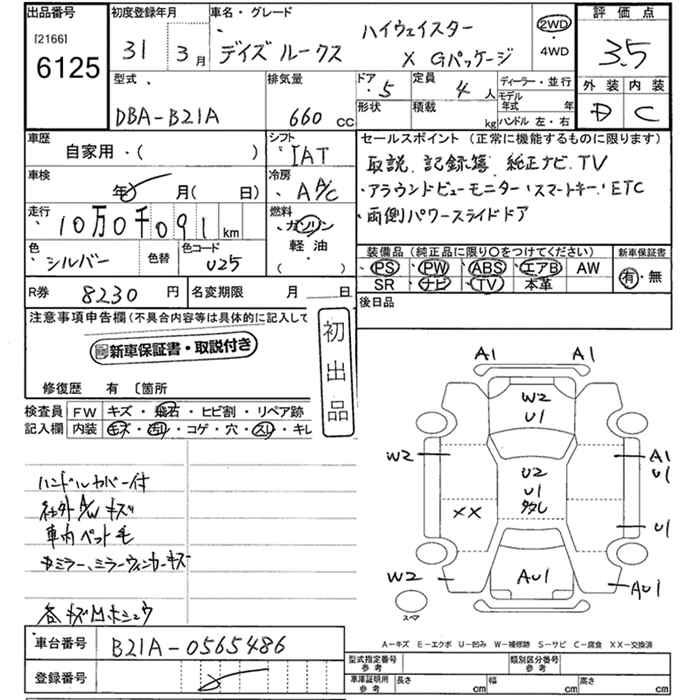 出品番号
[2166]
6125
初度登録年月
31 3月
車名・グレード
デイズ ルークス ハイウェイスター
X Gパッケージ
2WD
4WD
評価点
3.5
外装 内装
D C
型式
DBA-B21A
排気量
660 CC
ドア 5
形状
定員 4人
積載 kg
ディーラー・並行
モデル年式 年
ハンドル 左・右
車歴
自家用・( )
シフト
IAT
車検
年 月( 日)
冷房
A A/C
走行
10万0千091 km
燃料
ガソリン
軽油
( )
色
シルバー
色替
色コード
U25
セールスポイント (正常に機能するものに限ります)
取説、記録簿、純正ナビ、TV
・アラウンドビューモニター・スマートキー・ETC
・両側パワースライドドア
装備品 (純正品に限り○をつけてください)
PS PW ABS エアB AW
SR ナビ TV 本革
新車保証書
有・無
R券 8230 円
名変期限 月 日
後日品
注意事項申告欄 (不具合内容等は具体的に記入して
新車保証書・取説付き
初出品
修復歴 有 〔箇所
検査員記入欄
FW キズ・飛石・ヒビ割・リペア跡
内装 キズ・汚れ・コゲ・穴・スレ・キレ
ハンドルカバー付
社外A/Wキズ
車内ペット毛
ミラー、ミラーウィンカーキズ
各キズ凹ホシュウ
A1 A1
W2
U1
W2
A1
U1
U2
U1
XX
U1
W2
AU1
AU1
スペア
A-キズ E-エクボ U-凹み W-補修跡 S-サビ C-腐食 XX-交換済
車台番号 B21A-0565486
登録番号
型式指定番号 参考
類別区分番号 参考
車庫証明用 参考
長さ cm
幅 cm
高さ cm